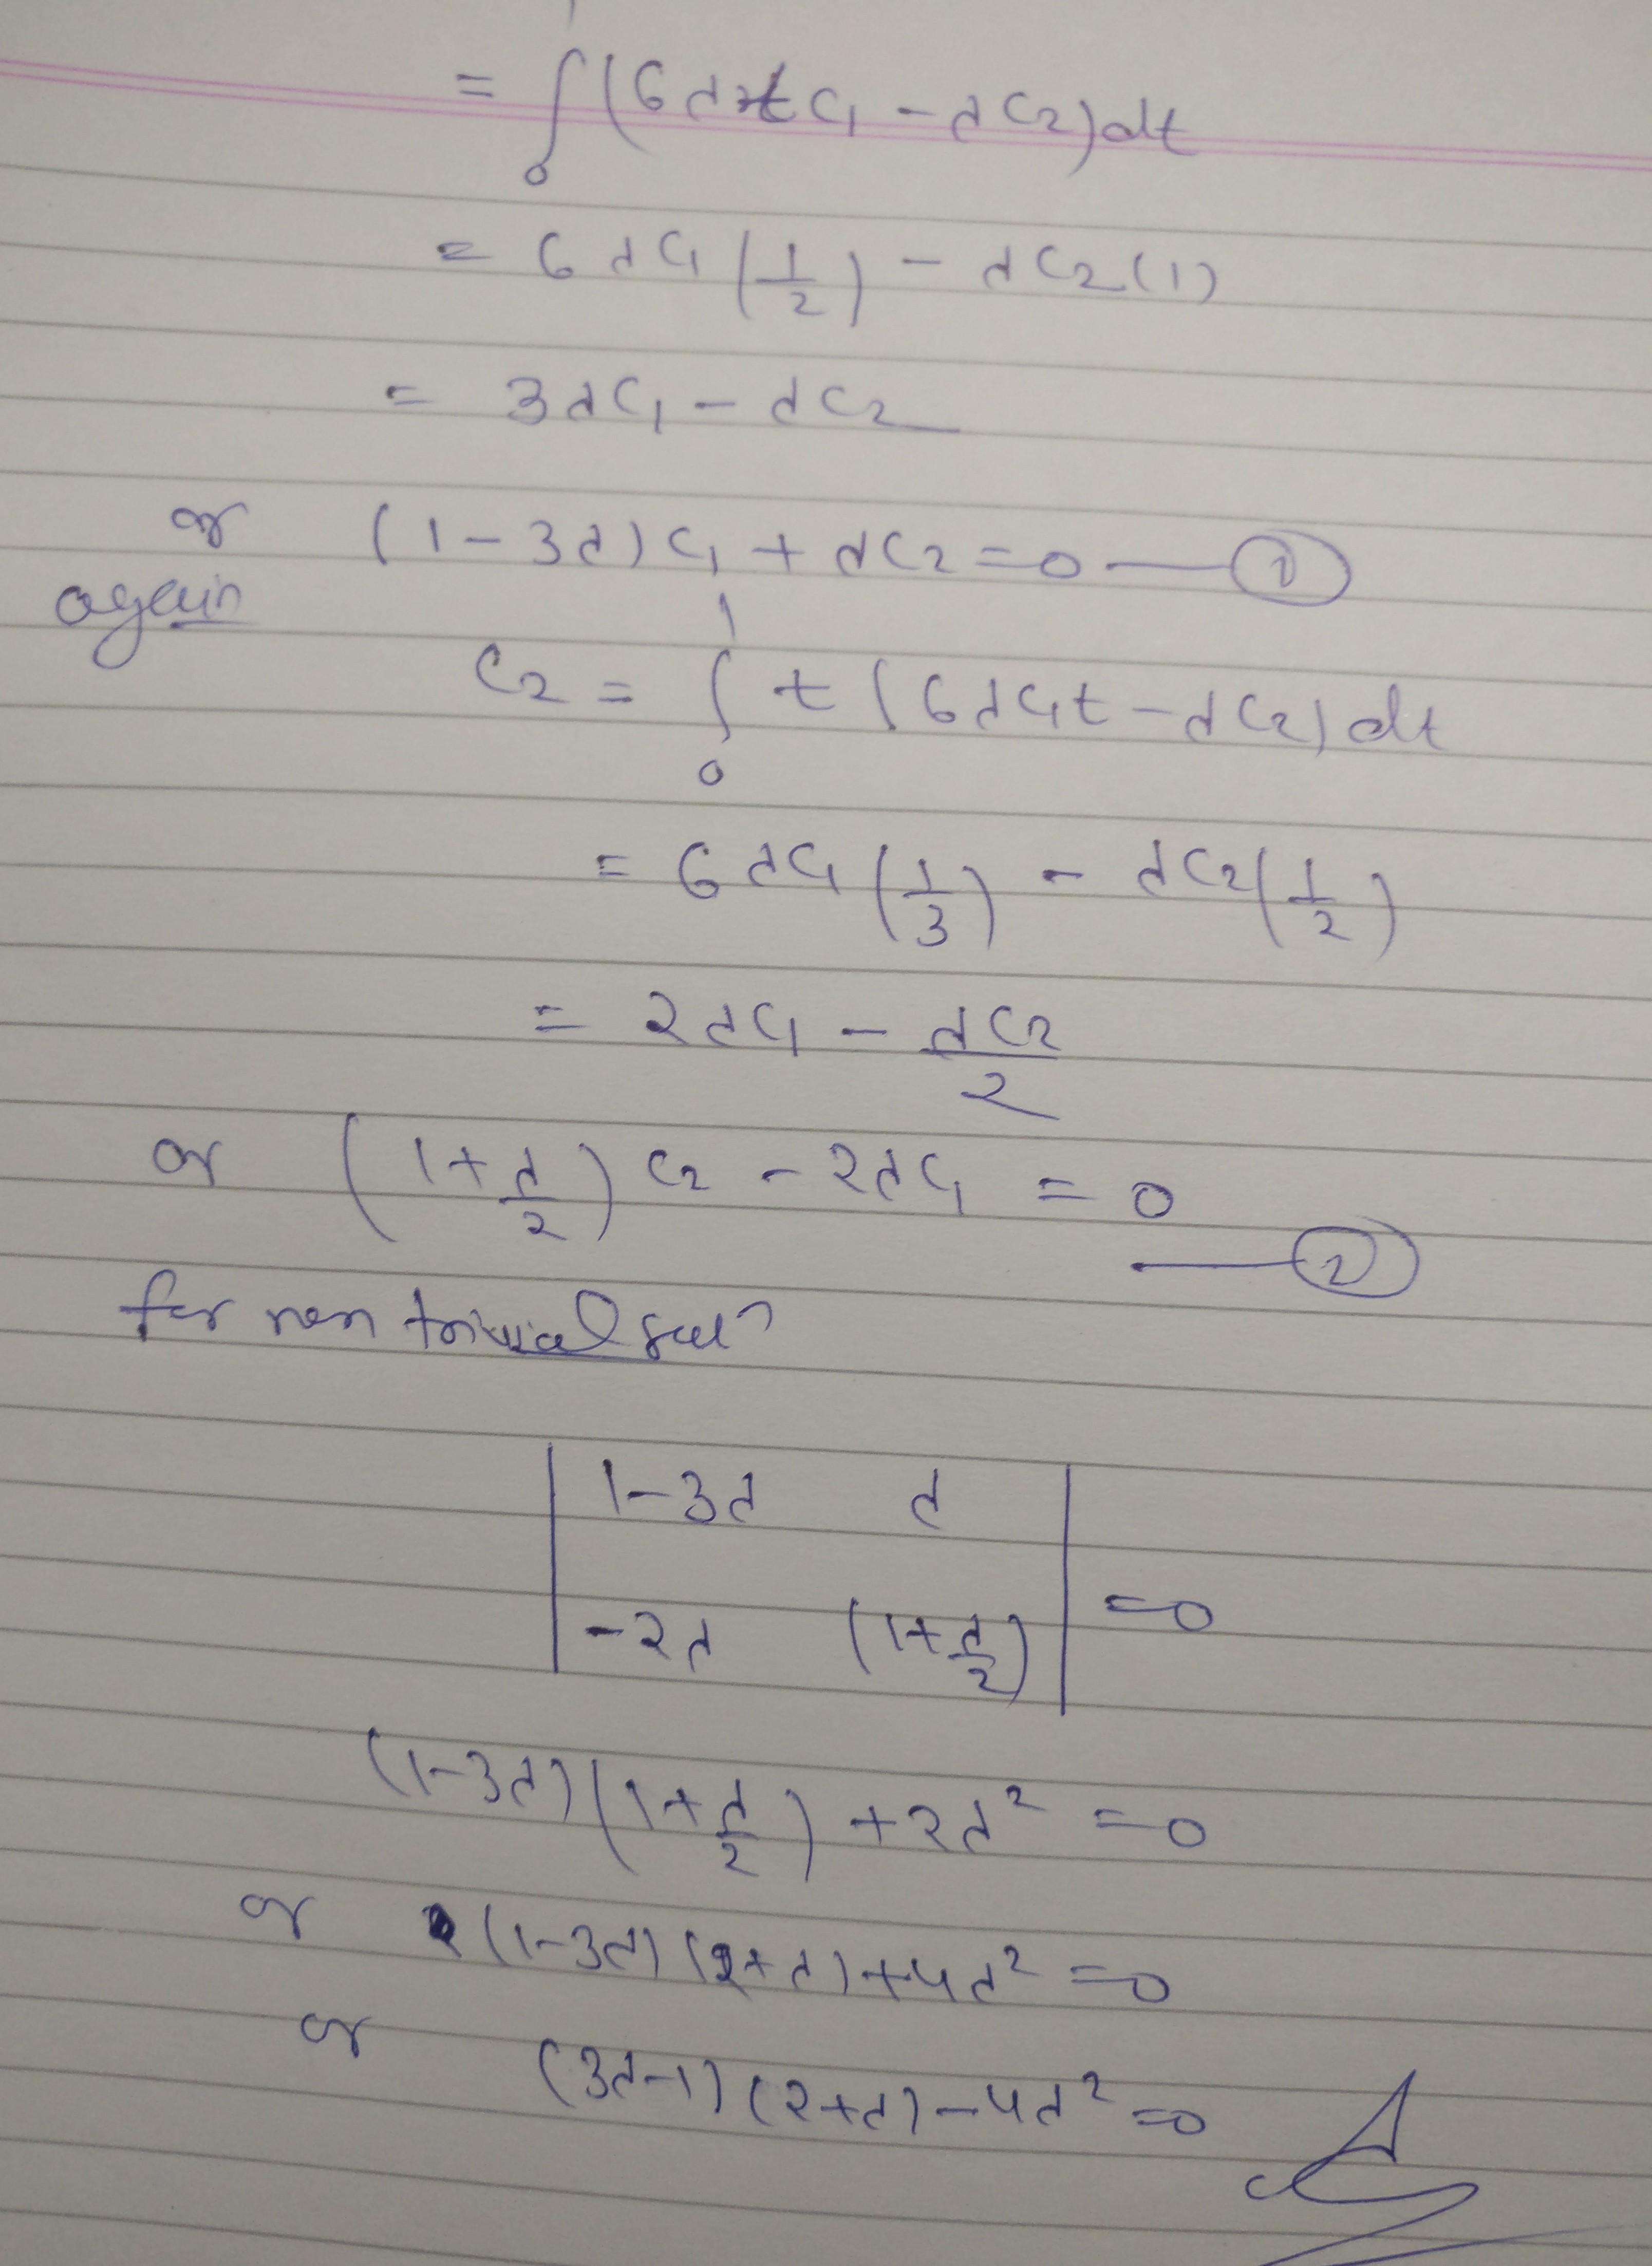 1
= ∫ (6λtC₁ - λC₂)dt
0
= 6λC₁ (1/2) - λC₂(1)
= 3λC₁ - λC₂
or (1-3λ)C₁ + λC₂ = 0 — ①
again
1
C₂ = ∫ t(6λC₁t - λC₂)dt
0
= 6λC₁ (1/3) - λC₂ (1/2)
= 2λC₁ - λC₂/2
or (1+λ/2) C₂ - 2λC₁ = 0
— ②
for non trivial solⁿ
| 1-3λ λ |
| -2λ (1+λ/2) | = 0
(1-3λ)(1+λ/2) + 2λ² = 0
or (1-3λ)(2+λ)+4λ² = 0
or (3λ-1)(2+λ)-4λ² = 0